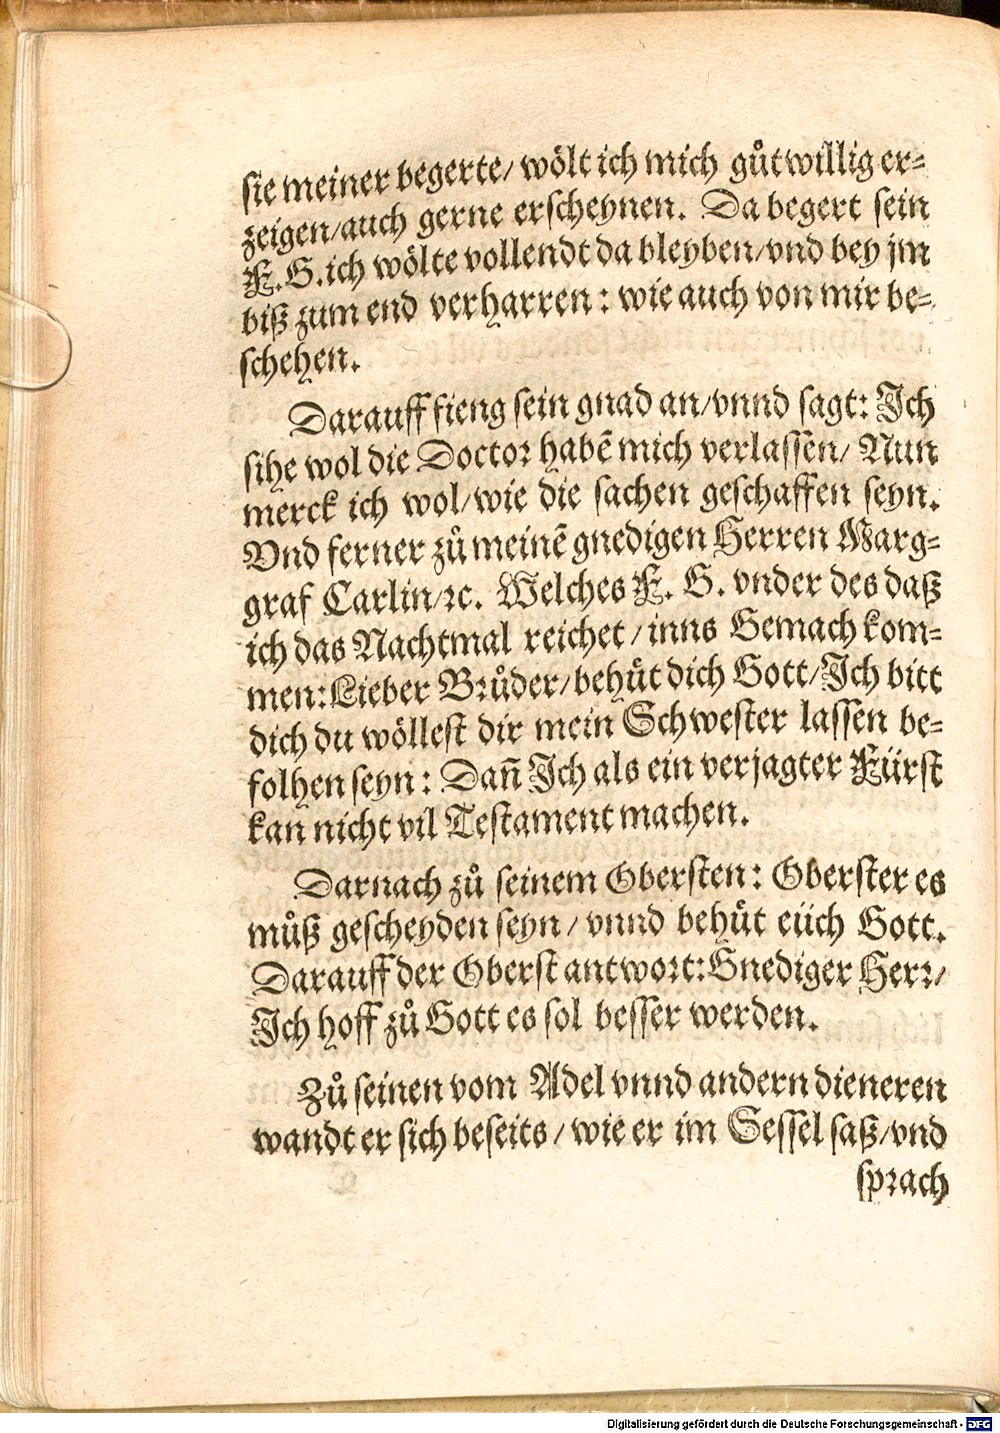 sie meiner begerte/ wölt ich mich gůtwillig er-
zeigen/auch gerne erscheynen. Da begert sein
F.G.ich wölte vollendt da bleyben/vnd bey jm
biß zum end verharren: wie auch von mir be-
schehen.
Darauff fieng sein gnad an/vnnd sagt: Ich
sihe wol die Doctor habē mich verlassen/ Nun
merck ich wol/wie die sachen geschaffen seyn.
Vnd ferner zů meinē gnedigen Herren Marg-
graf Carlin/ꝛc. Welches F. G. vnder des daß
ich das Nachtmal reichet/inns Gemach kom-
men:Lieber Brůder/behüt dich Gott/Ich bitt
dich du wöllest dir mein Schwester lassen be-
folhen seyn: Dañ Ich als ein verjagter Fürst
kan nicht vil Testament machen.
Darnach zů seinem Obersten: Oberster es
můß gescheyden seyn/ vnnd behüt eüch Gott.
Darauff der Oberst antwort:Gnediger Herr/
Ich hoff zů Gott es sol besser werden.
Zů seinen vom Adel vnnd andern dieneren
wandt er sich beseits/wie er im Sessel saß/vnd
sprach
Digitalisierung gefördert durch die Deutsche Forschungsgemeinschaft - DFG